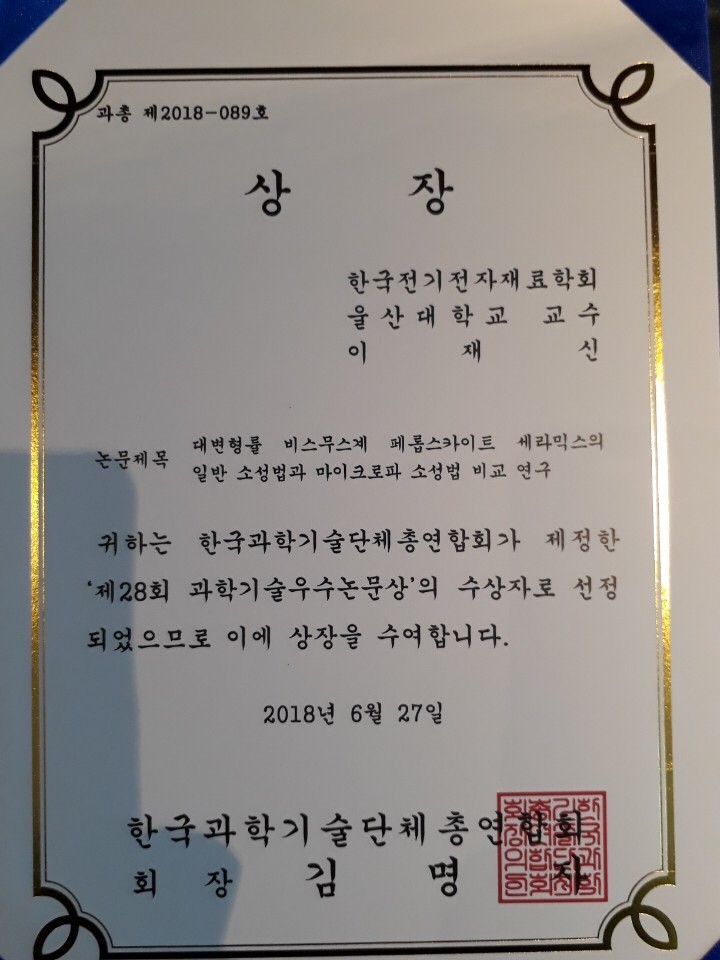 과총 제2018-089호
상 장
한국전기전자재료학회
울산대학교 교수
이 재 신
논문제목 대변형률 비스무스계 페롭스카이트 세라믹스의
일반 소성법과 마이크로파 소성법 비교 연구
귀하는 한국과학기술단체총연합회가 제정한
‘제28회 과학기술우수논문상’의 수상자로 선정
되었으므로 이에 상장을 수여합니다.
2018년 6월 27일
한국과학기술단체총연합회
회 장 김 명 자